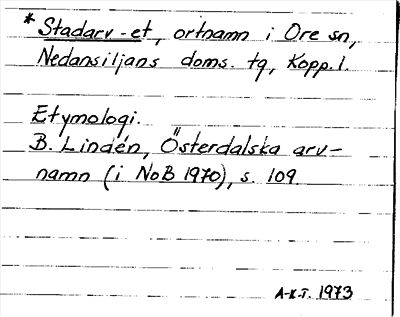 * Stadarv-et, ortnamn i Ore sn,
Nedansiljans doms. tg, Kopp. l.
Etymologi.
B. Lindén, Österdalska arv-
namn (i NoB 1970), s. 109
A-K.T. 1973